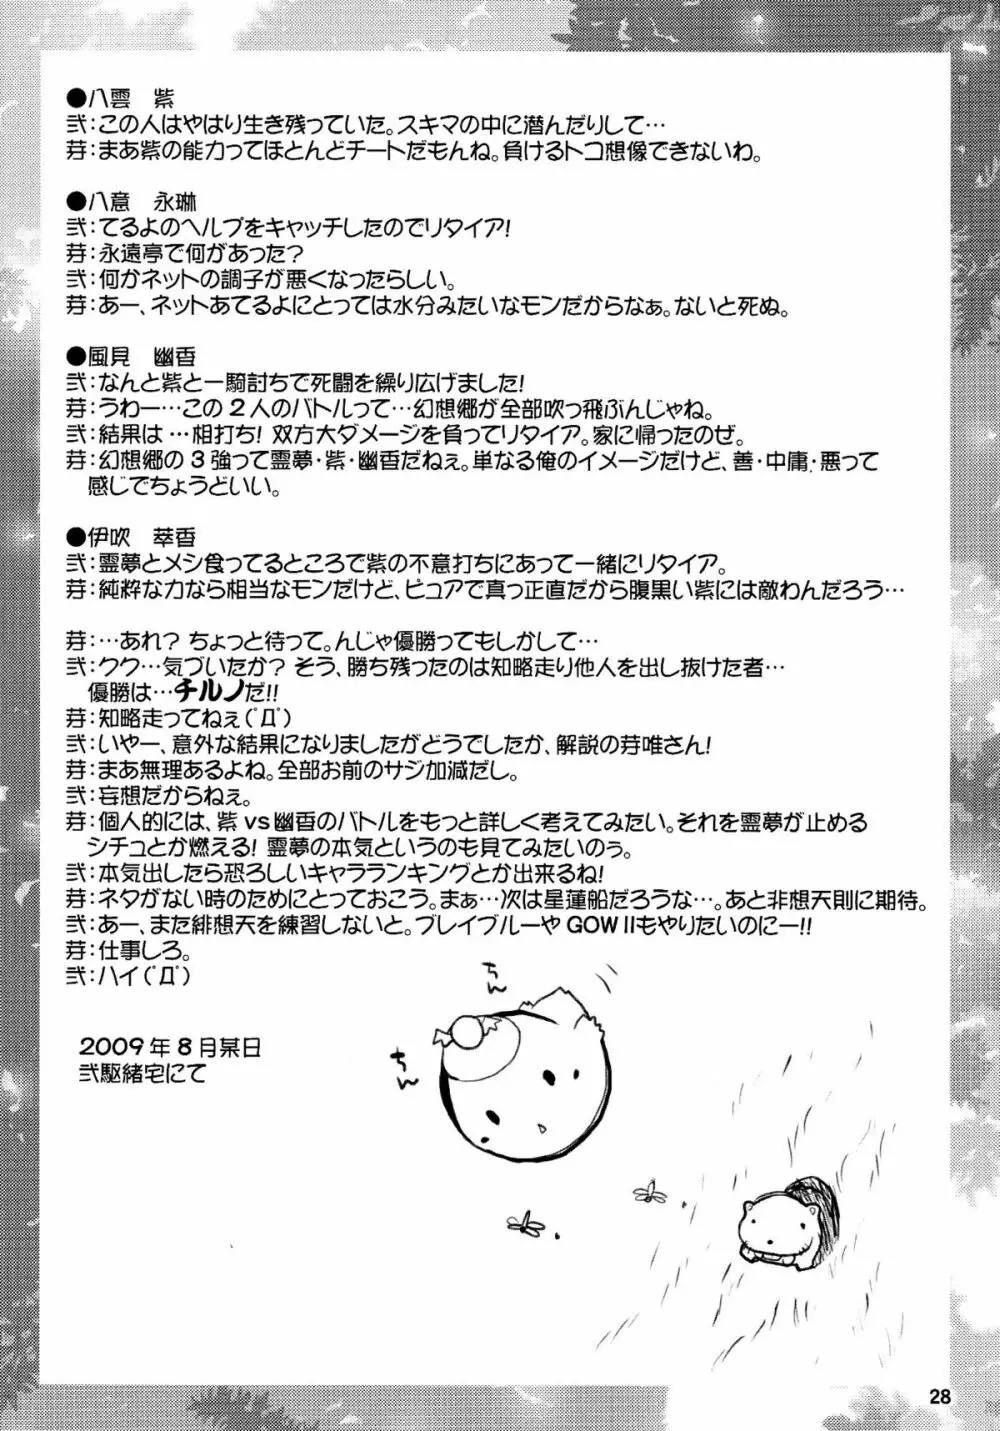 ●八雲　紫
弐：この人はやはり生き残っていた。スキマの中に潜んだりして…
芽：まあ紫の能力ってほとんどチートだもんね。負けるトコ想像できないわ。
●八意　永琳
弐：てるよのヘルプをキャッチしたのでリタイア!
芽：永遠亭で何があった?
弐：何かネットの調子が悪くなったらしい。
芽：あー、ネットあてるよにとっては水分みたいなモンだからなぁ。ないと死ぬ。
●風見　幽香
弐：なんと紫と一騎討ちで死闘を繰り広げました!
芽：うわー…この2人のバトルって…幻想郷が全部吹っ飛ぶんじゃね。
弐：結果は…相打ち! 双方大ダメージを負ってリタイア。家に帰ったのぜ。
芽：幻想郷の3強って霊夢・紫・幽香だねぇ。単なる俺のイメージだけど、善・中庸・悪って
感じでちょうどいい。
●伊吹　萃香
弐：霊夢とメシ食ってるところで紫の不意打ちにあって一緒にリタイア。
芽：純粋な力なら相当なモンだけど、ピュアで真っ正直だから腹黒い紫には敵わんだろう…
芽：…あれ? ちょっと待って。んじゃ優勝ってもしかして…
弐：クク…気づいたか? そう、勝ち残ったのは知略走り他人を出し抜けた者…
優勝は…チルノだ!!
芽：知略走ってねぇ(ﾟДﾟ)
弐：いやー、意外な結果になりましたがどうでしたか、解説の芽唯さん!
芽：まあ無理あるよね。全部お前のサジ加減だし。
弐：妄想だからねぇ。
芽：個人的には、紫vs幽香のバトルをもっと詳しく考えてみたい。それを霊夢が止める
シチュとか燃える! 霊夢の本気というのも見てみたいのぅ。
弐：本気出したら恐ろしいキャラランキングとか出来るね!
芽：ネタがない時のためにとっておこう。まぁ…次は星蓮船だろうな…。あと非想天則に期待。
弐：あー、また緋想天を練習しないと。ブレイブルーやGOWIIもやりたいのにー!!
芽：仕事しろ。
弐：ハイ(ﾟДﾟ)
2009年8月某日
弐駆緒宅にて
ちん
ちん
28